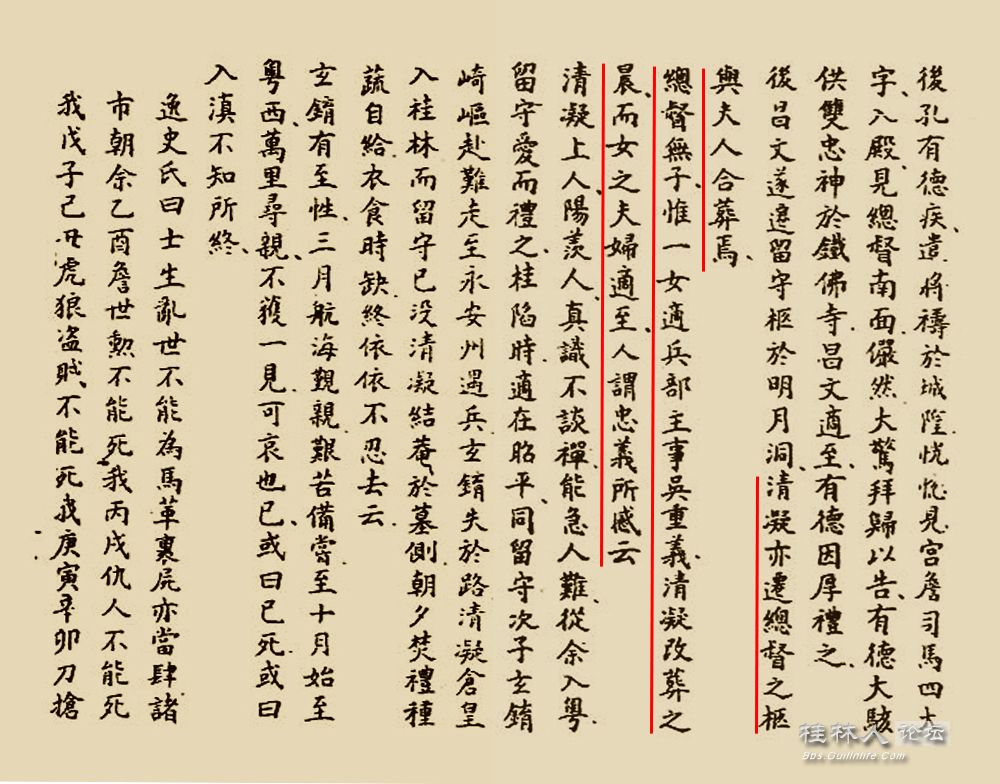 後孔有德疾遣將禱於城隍恍惚見宮詹司馬四大
字入殿見總督南面儼然大驚拜歸以告有德大駭
供雙忠神於鐵佛寺昌文適至有德因厚禮之
後昌文遂遷留守柩於明月洞清凝亦遷總督之柩
與夫人合葬焉
總督無子惟一女適兵部主事吳重義清凝改葬之
晨而女之夫婦適至人謂忠義所感云
清凝上人陽羨人真識不談禪能急人難從余入粵
留守愛而禮之桂陷時適在昭平同留守次子玄錥
崎嶇赴難走至永安州遇兵玄錥失於路清凝倉皇
入桂林而留守已没清凝結菴於墓側朝夕焚禮種
蔬自給衣食時缺終依依不忍去云
玄錥有至性三月航海覲親艱苦備嘗至十月始至
粤西萬里尋親不獲一見可哀也已或曰已死或曰
入滇不知所終
逸史氏曰士生亂世不能為馬革裹屍亦當肆諸
市朝余乙酉詹世勲不能死我丙戌仇人不能死
我戊子己丑虎狼盗賊不能死我庚寅辛卯刀搶
桂林人论坛
Bbs.Guilinlife.Com